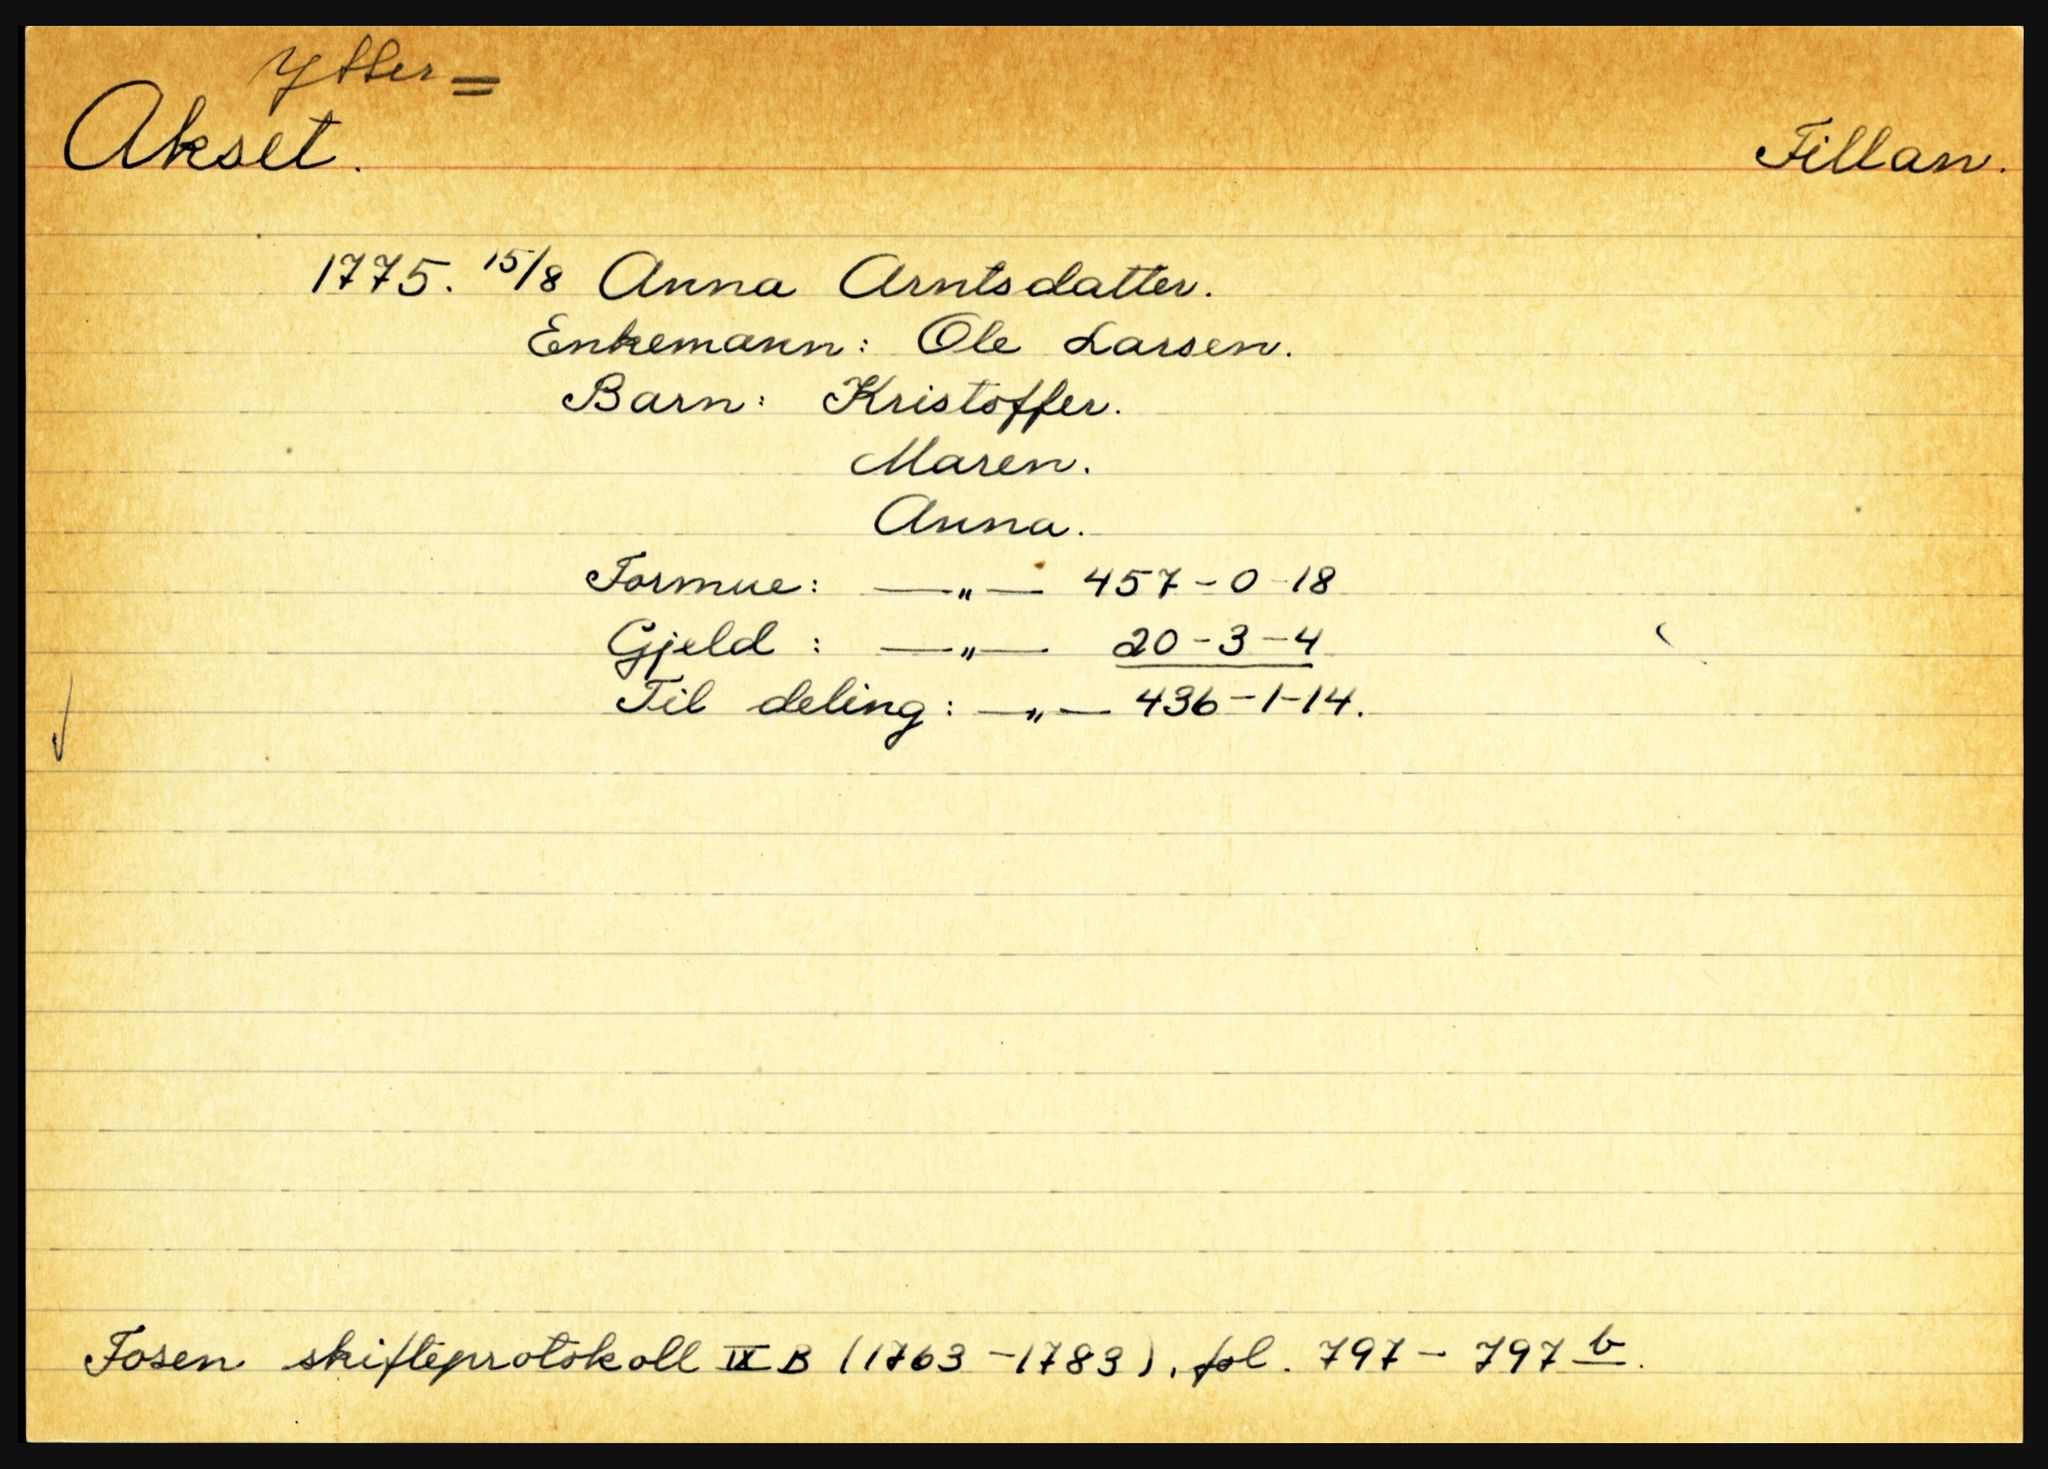 Ytter=
Akset. Fillan.
1775. 15/8 Anna Arntsdatter.
Enkemann: Ole Larsen.
Barn: Kristoffer.
Maren.
Anna.
Formue: —„— 457-0-18
Gjeld: —„— 20-3-4
Til deling: —„— 436-1-14.
Fosen skifteprotokoll IX B (1763-1783), fol. 797-797 b.